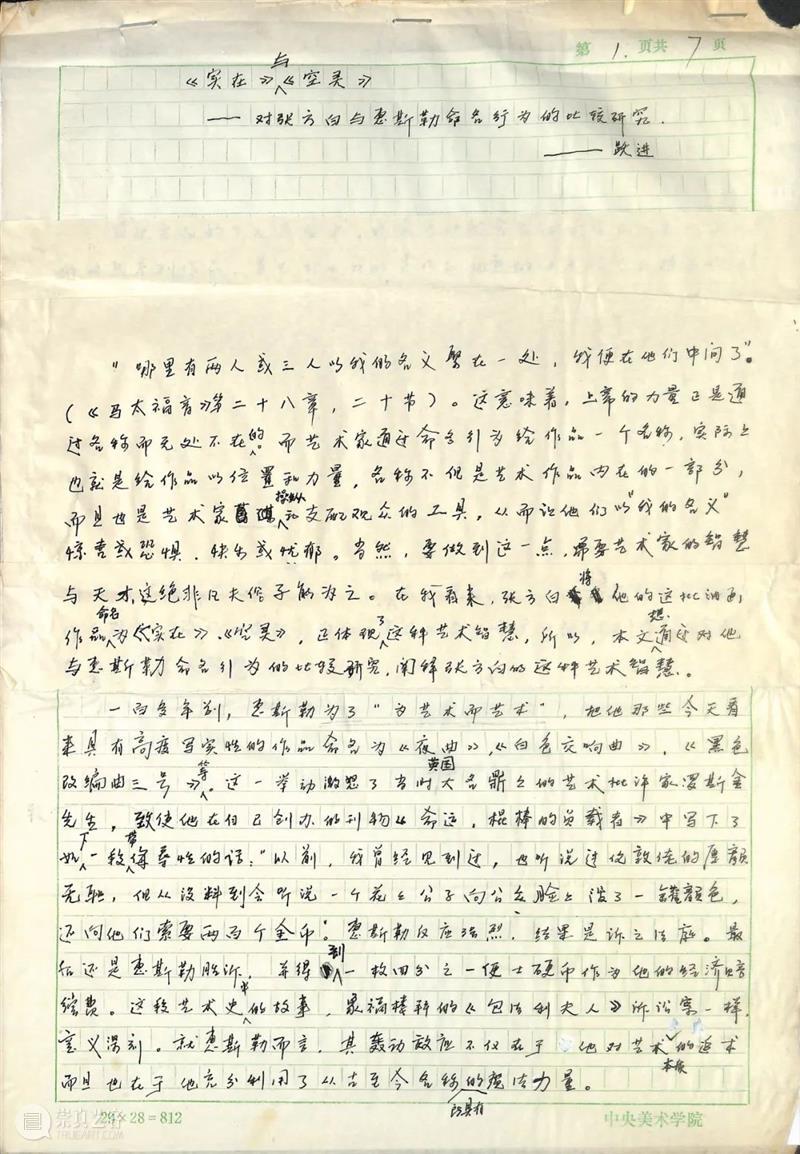 第 1. 页共 7 页
《实在》与《空灵》
—— 对张方白与惠斯勒命名行为的比较研究.
—— 跃进
“哪里有两人或三人以我的名义聚在一处，我便在他们中间了”。
（《马太福音》第二十八章，二十节）。这意味着，上帝的力量正是通
过名称而无处不在的。而艺术家通过命名行为给作品一个名称，实际上
也就是给作品以位置和力量，名称不但是艺术作品内在的一部分，
而且也是艺术家操纵和支配观众的工具，从而让他们以“我的名义”
惊喜或恐惧、快乐或忧郁。当然，要做到这一点，需要艺术家的智慧
与天才，这绝非凡夫俗子能为之。在我看来，张方白将他的这批油画
作品命名为《实在》、《空灵》，正体现了这种艺术智慧，所以，本文想通过对他
与惠斯勒命名行为的比较研究，阐释张方白的这种艺术智慧。
一百多年前，惠斯勒为了“为艺术而艺术”，把他那些今天看
来具有高度写实性的作品命名为《夜曲》，《白色交响曲》，《黑色
改编曲三号》等。这一举动激怒了当时大名鼎鼎的英国艺术批评家罗斯金
先生，致使他在自己创办的刊物《希运，棍棒的负载者》中写下了
如下一段带侮辱性的话：“以前，我曾经见到过，也听说过伦敦佬的厚颜
无耻，但从没料到会听说一个花花公子向公众脸上泼了一罐颜色，
还向他们索要两百个金币”。惠斯勒反应强烈，结果是诉之法庭。最
后还是惠斯勒胜诉，并得到一枚四分之一便士硬币作为他的经济赔
偿费。这段艺术史中的故事，象福楼拜的《包法利夫人》诉讼案一样，
意义深刻。就惠斯勒而言，其轰动效应不仅在于他对艺术本假的追求
而且也在于他充分利用了从古至今名称所具有的魔法力量。
29×28=812
中央美术学院
崇真艺客
TRUEART.COM